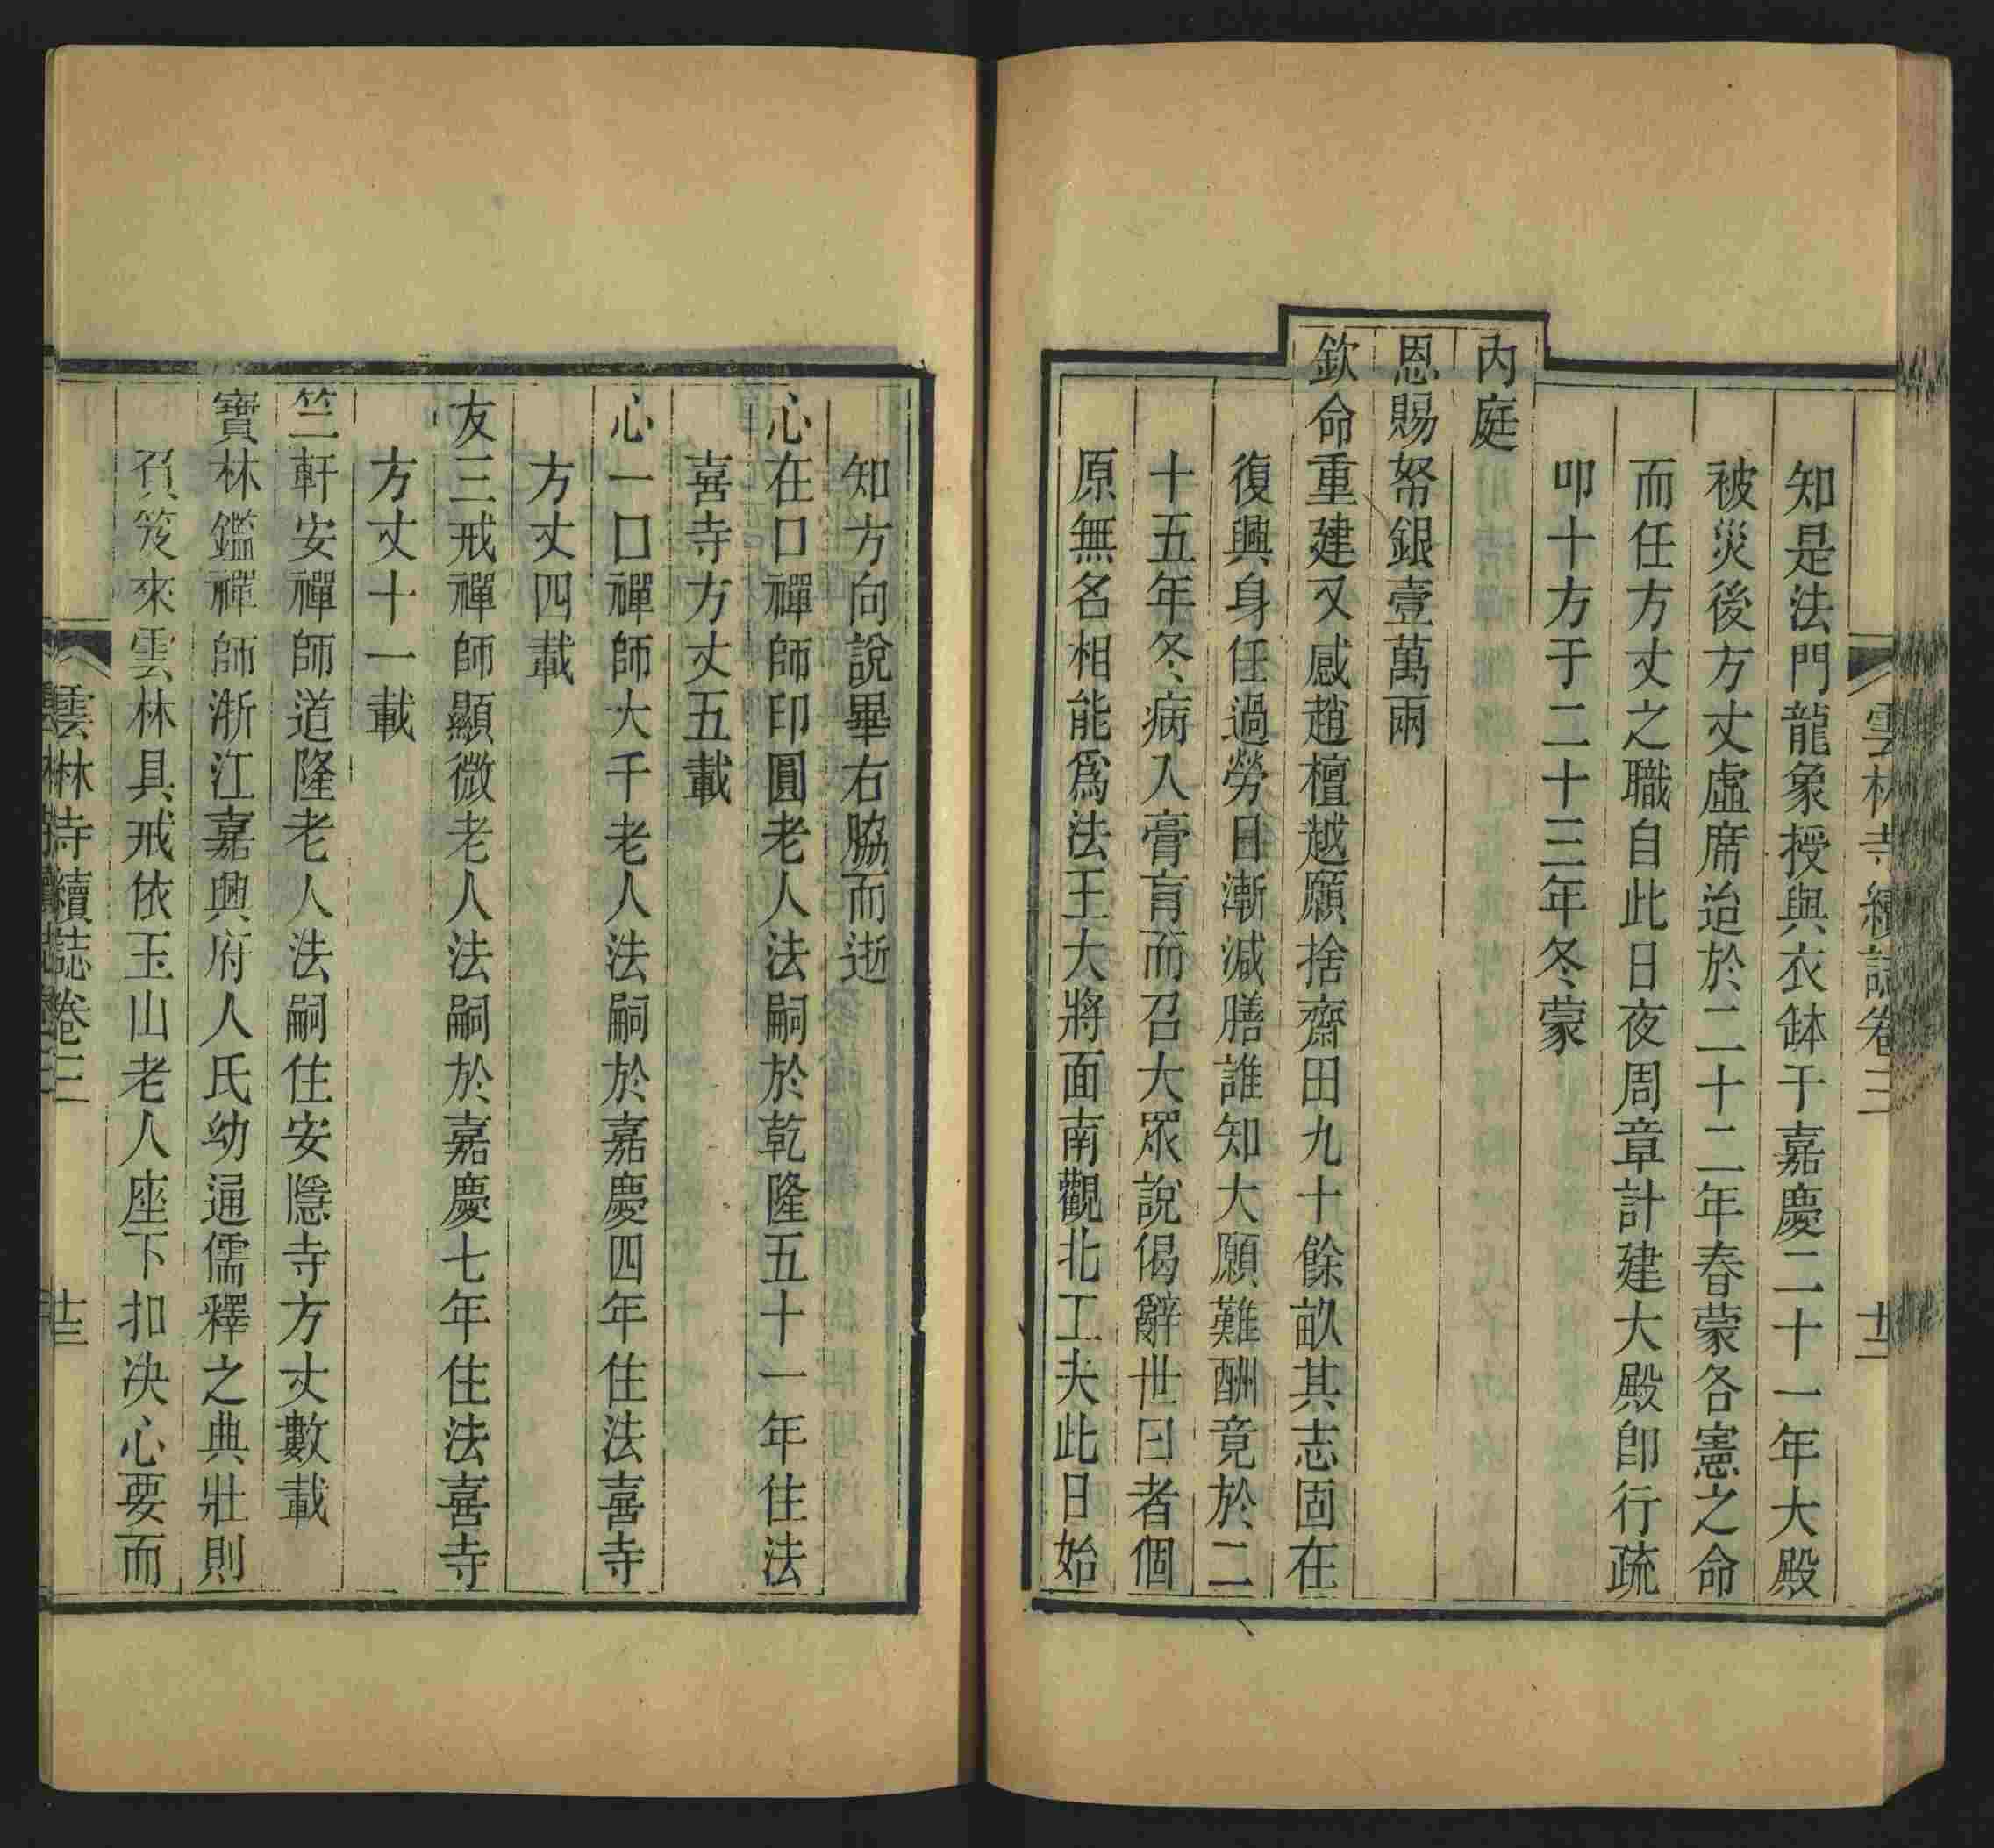 雲林寺續誌卷三 十二
知是法門龍象授與衣鉢于嘉慶二十一年大殿
被災後方丈虛席迨於二十二年春蒙各憲之命
而任方丈之職自此日夜周章計建大殿即行疏
叩十方于二十三年冬蒙
內庭
恩賜帑銀壹萬兩
欽命重建又感趙檀越願捨齋田九十餘畝其志固在
復興身任過勞日漸減膳誰知大願難酬竟於二
十五年冬病入膏肓而召大眾說偈辭世曰者個
原無名相能為法王大將面南觀北工夫此日始
知方向說畢右脇而逝
心在口禪師印圓老人法嗣於乾隆五十一年住法
喜寺方丈五載
心一口禪師大千老人法嗣於嘉慶四年住法喜寺
方丈四載
友三戒禪師顯微老人法嗣於嘉慶七年住法喜寺
方丈十一載
竺軒安禪師道隆老人法嗣住安隱寺方丈數載
寶林鑑禪師浙江嘉興府人氏幼通儒釋之典壯則
負笈來雲林具戒依玉山老人座下扣決心要而
雲林寺續誌卷三 十三